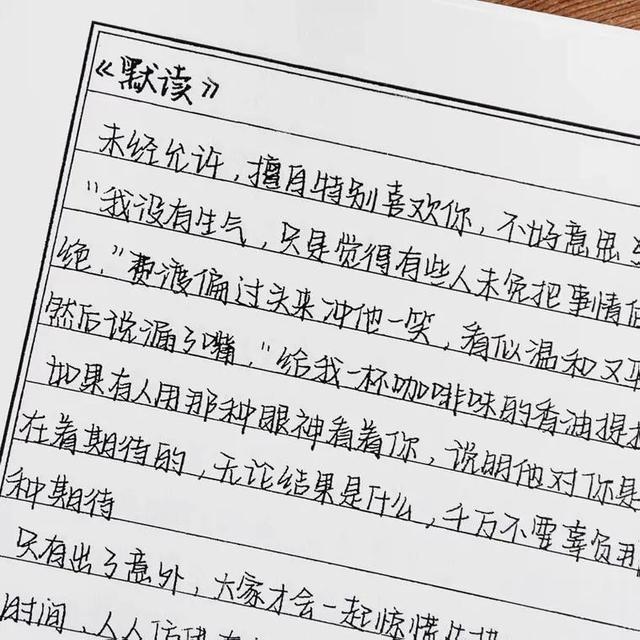 《默读》
未经允许，擅自特别喜欢你，不好意思
"我没有生气，只是觉得有些人未免把事情
绝，"费渡偏过头来冲他一笑，看似温和又
然后说漏了嘴，"给我一杯咖啡味的香油提
如果有人用那种眼神看着你，说明他对你是
在着期待的，无论结果是什么，千万不要辜负
种期待
只有出了意外，大家才会一起惊慌
时间，人人